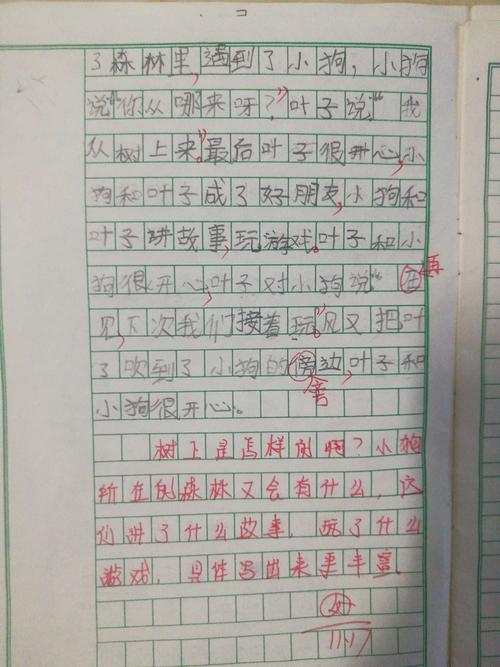 了森林里,遇到了小狗,小狗
说“你从哪来呀?”叶子说“我
从树上来。”最后叶子很开心,小
狗和叶子成了好朋友,小狗和
叶子讲故事,玩游戏。叶子和小
狗很开心,叶子对小狗说“再
见,下次我们接着玩。”风又把叶
了吹到了小狗的傍边,叶子和
旁
小狗很开心。
树上是怎样的啊?小狗
所在的森林又会有什么,它
们讲了什么故事,玩了什么
游戏,具体写出来更丰富。
好
11.17